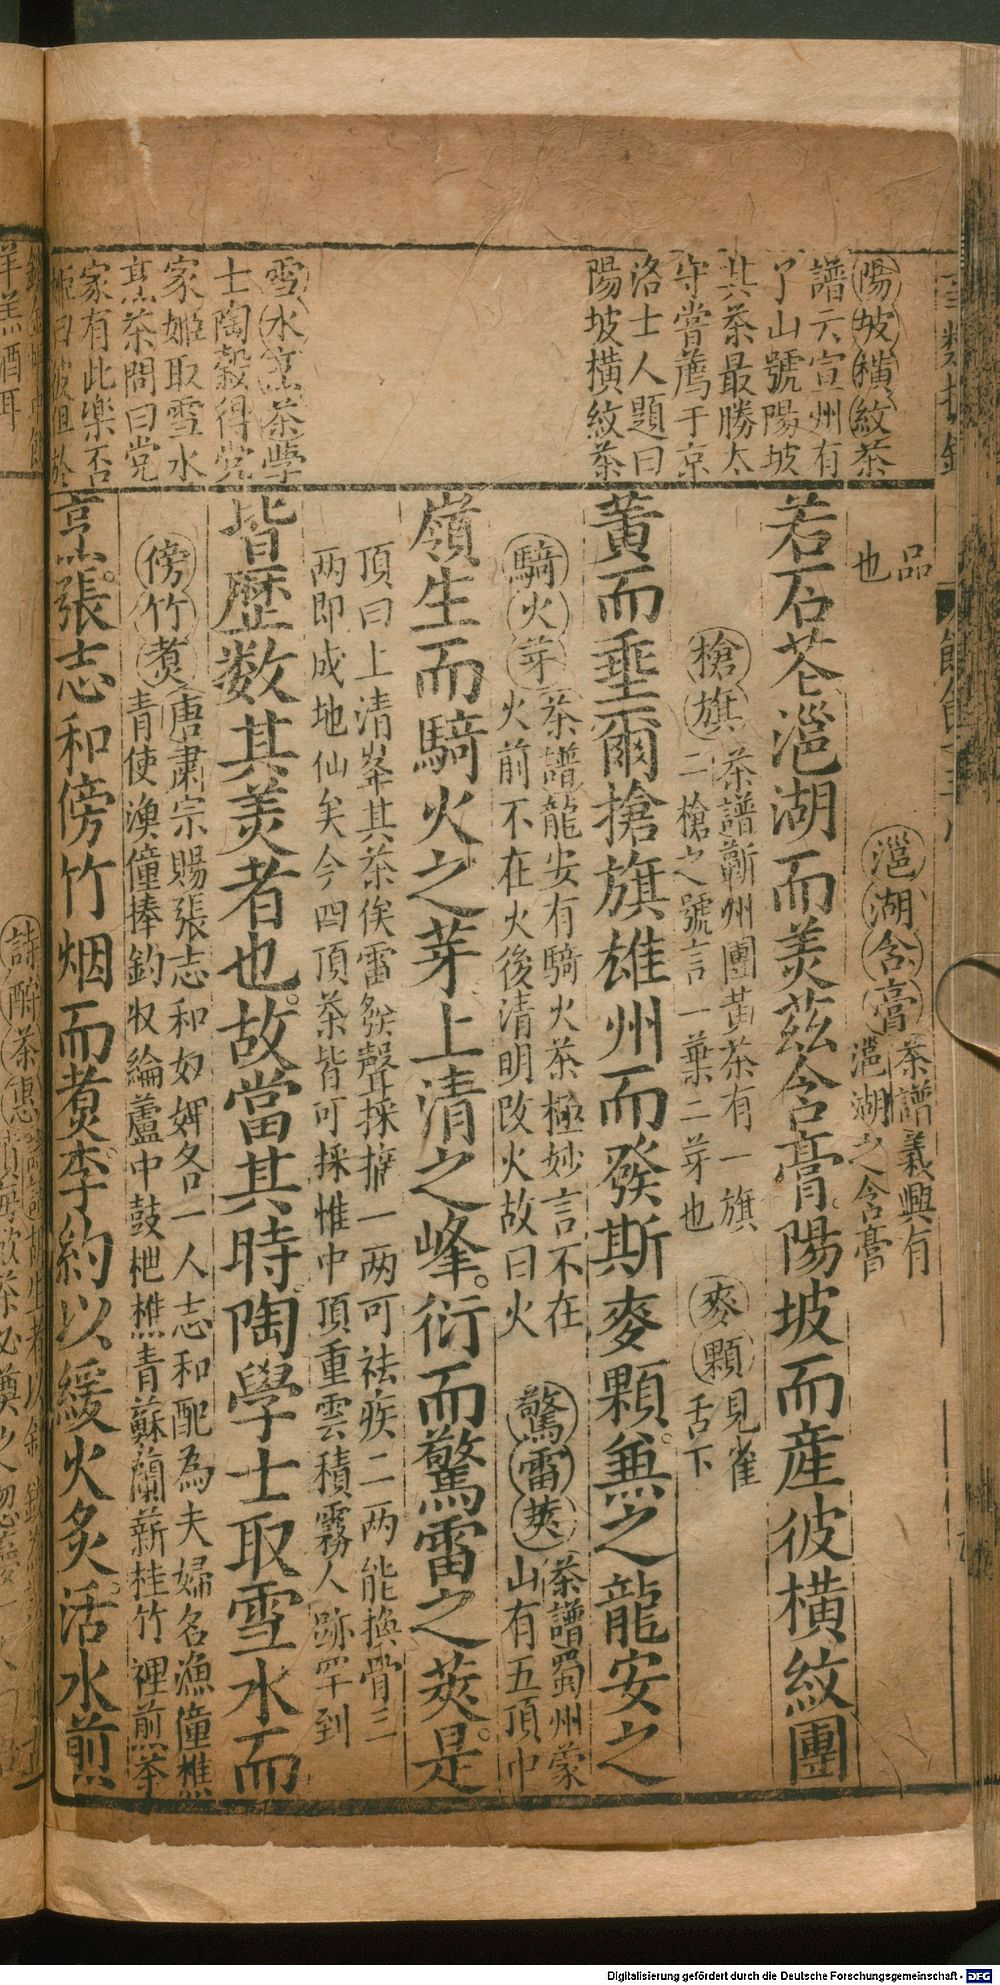 陽坡橫紋茶
譜云宣州有
了山號陽坡
其茶最勝太
守嘗薦于京
洛士人題曰
陽坡橫紋茶
雪水烹茶學
士陶穀得党
家姬取雪水
烹茶問曰党
家有此樂否
品
也
㴩湖含膏茶譜義興有
㴩湖之含膏
若石芲㴩湖而美茲含膏陽坡而產彼橫紋團
槍旗茶譜蘄州團黃茶有一旗
二槍之號言一葉二芽也
麥顆見雀
舌下
黃而垂爾搶旗雄州而發斯麥顆兼之龍安之
騎火芽茶譜龍安有騎火茶極妙言不在
火前不在火後清明改火故曰火
驚雷莢茶譜蜀州蒙
山有五頂中
嶺生而騎火之芽上清之峰衍而驚雷之莢是
頂曰上清峯其茶俟雷發聲採摘一两可祛疾二两能換骨三
两即成地仙矣今四頂茶皆可採惟中頂重雲積霧人跡罕到
皆歷数其美者也故當其時陶學士取雪水而
傍竹煑唐肅宗賜張志和奴婢各一人志和配為夫婦名漁僮樵
青使漁僮捧釣收綸蘆中鼓枻樵青蘇蘭薪桂竹裡煎李
烹張志和傍竹烟而煑李約以緩火炙活水煎